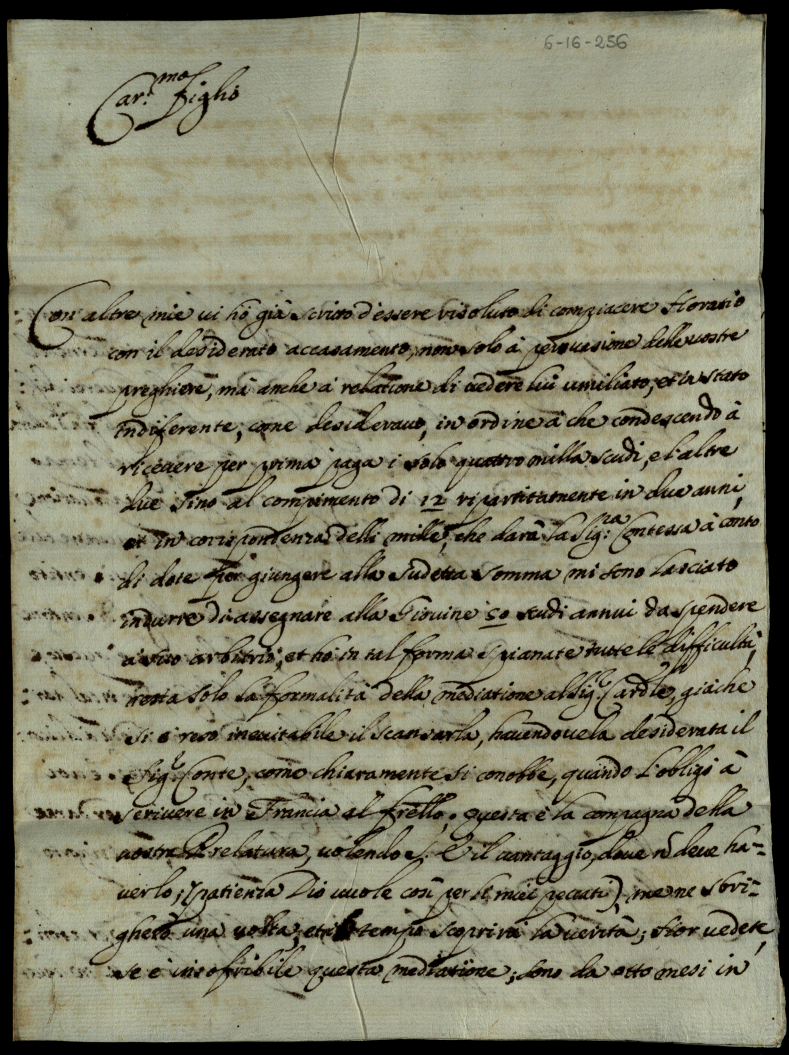 6-16-256
Car.mo figlio
Con altre mie vi hò già scritto d'essere risoluto di compiacere Horatio
con il desiderato accasamento, non solo à persuasione delle vostre
preghiere, mà anche à relatione di vedere lui umiliato, et in stato
indiferente, come desideravo, in ordine à che condescendo à
ricevere per prima paga i solo quattro milla scudi, e l'altre
due sino al compimento di 12 ripartitamente in due anni,
et in corrispontenza delli mille, che darà la Sig.ra Contessa à conto
di dote per giungere alla sudetta somma mi sono lasciato
indurre di assegnare alla Giovine 50 scudi annui da spendere
a suo arbitrio; et hò in tal forma spianate tutte le difficultà,
resta solo la formalità della mediatione al Sig.r Cardle, giàche
si è reso inevitabile il scansarla, havendovela desiderata il
Sig.r Conte, come chiaramente si conobbe, quando l'obligò à
scrivere in Francia al frello. questa è la compagna della
vostra Prelatura, volendo S. E il vantaggio, dove nō deve ha-
verlo; (patienza Dio vuole così per li miei peccati) me ne sbri-
gherò una volta, et il tempo scoprirà la verità; hor vedete,
se è insofribile questa mediatione; sono da otto mesi in